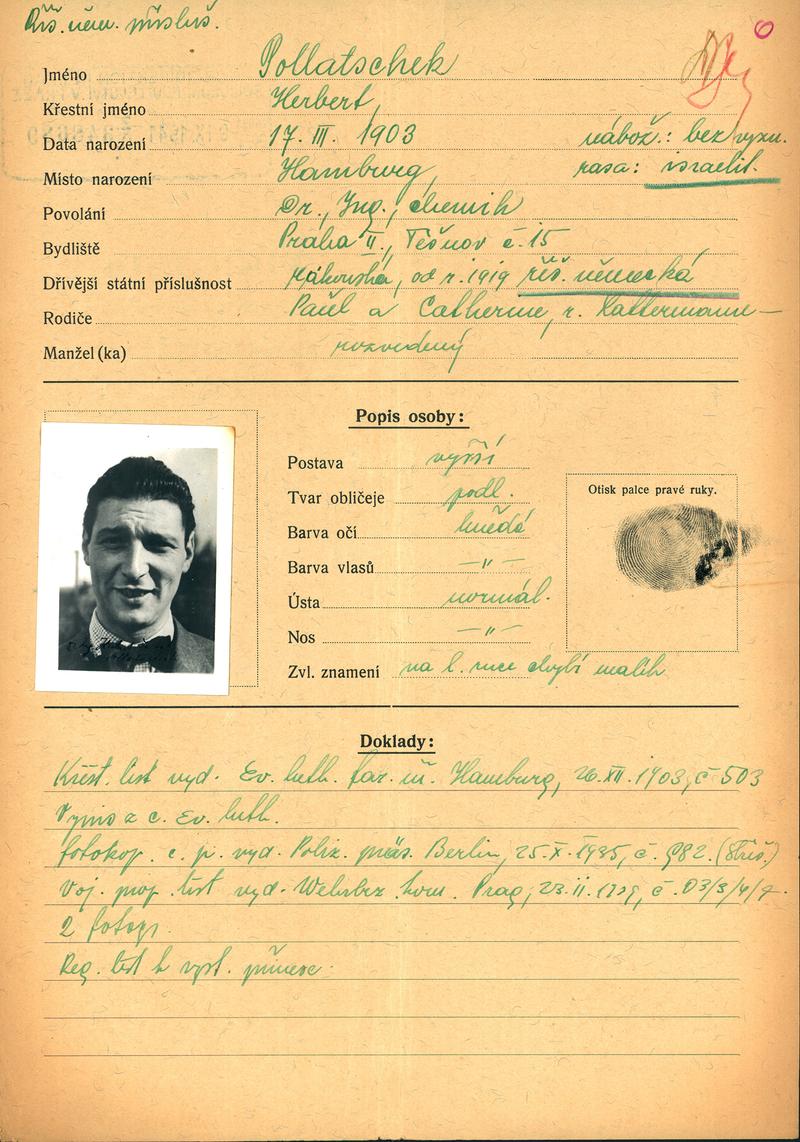 Říš. něm. přísluš.
Jméno Pollatschek
Křestní jméno Herbert,
Data narození 17. III. 1903 nábož.: bez vyzn.
Místo narození Hamburg, rasa: israelit.
Povolání Dr., Ing., chemik
Bydliště Praha II., Těšnov č. 15
Dřívější státní příslušnost rakouská, od r. 1919 říš. německá
Rodiče Paul a Catherine, r. Kattermann
Manžel (ka) rozvedený
Popis osoby:
Postava vyšší
Tvar obličeje podl.
Barva očí hnědé
Barva vlasů —"—
Ústa normál.
Nos —"—
Zvl. znamení na l. ruce chybí malík
Otisk palce pravé ruky.
Doklady:
Křest. list vyd. Ev. luth. far. ú. Hamburg, 26. XII. 1903, č 503
Výpis z c. Ev. luth.
fotokop. c. p. vyd. Poliz. präs. Berlin, 25. X. 1935, č.
Voj. prop. list vyd. Wehrbez. kom. Prag, 23. II.
2 fotogr.
Reg. list k vyst. přinese